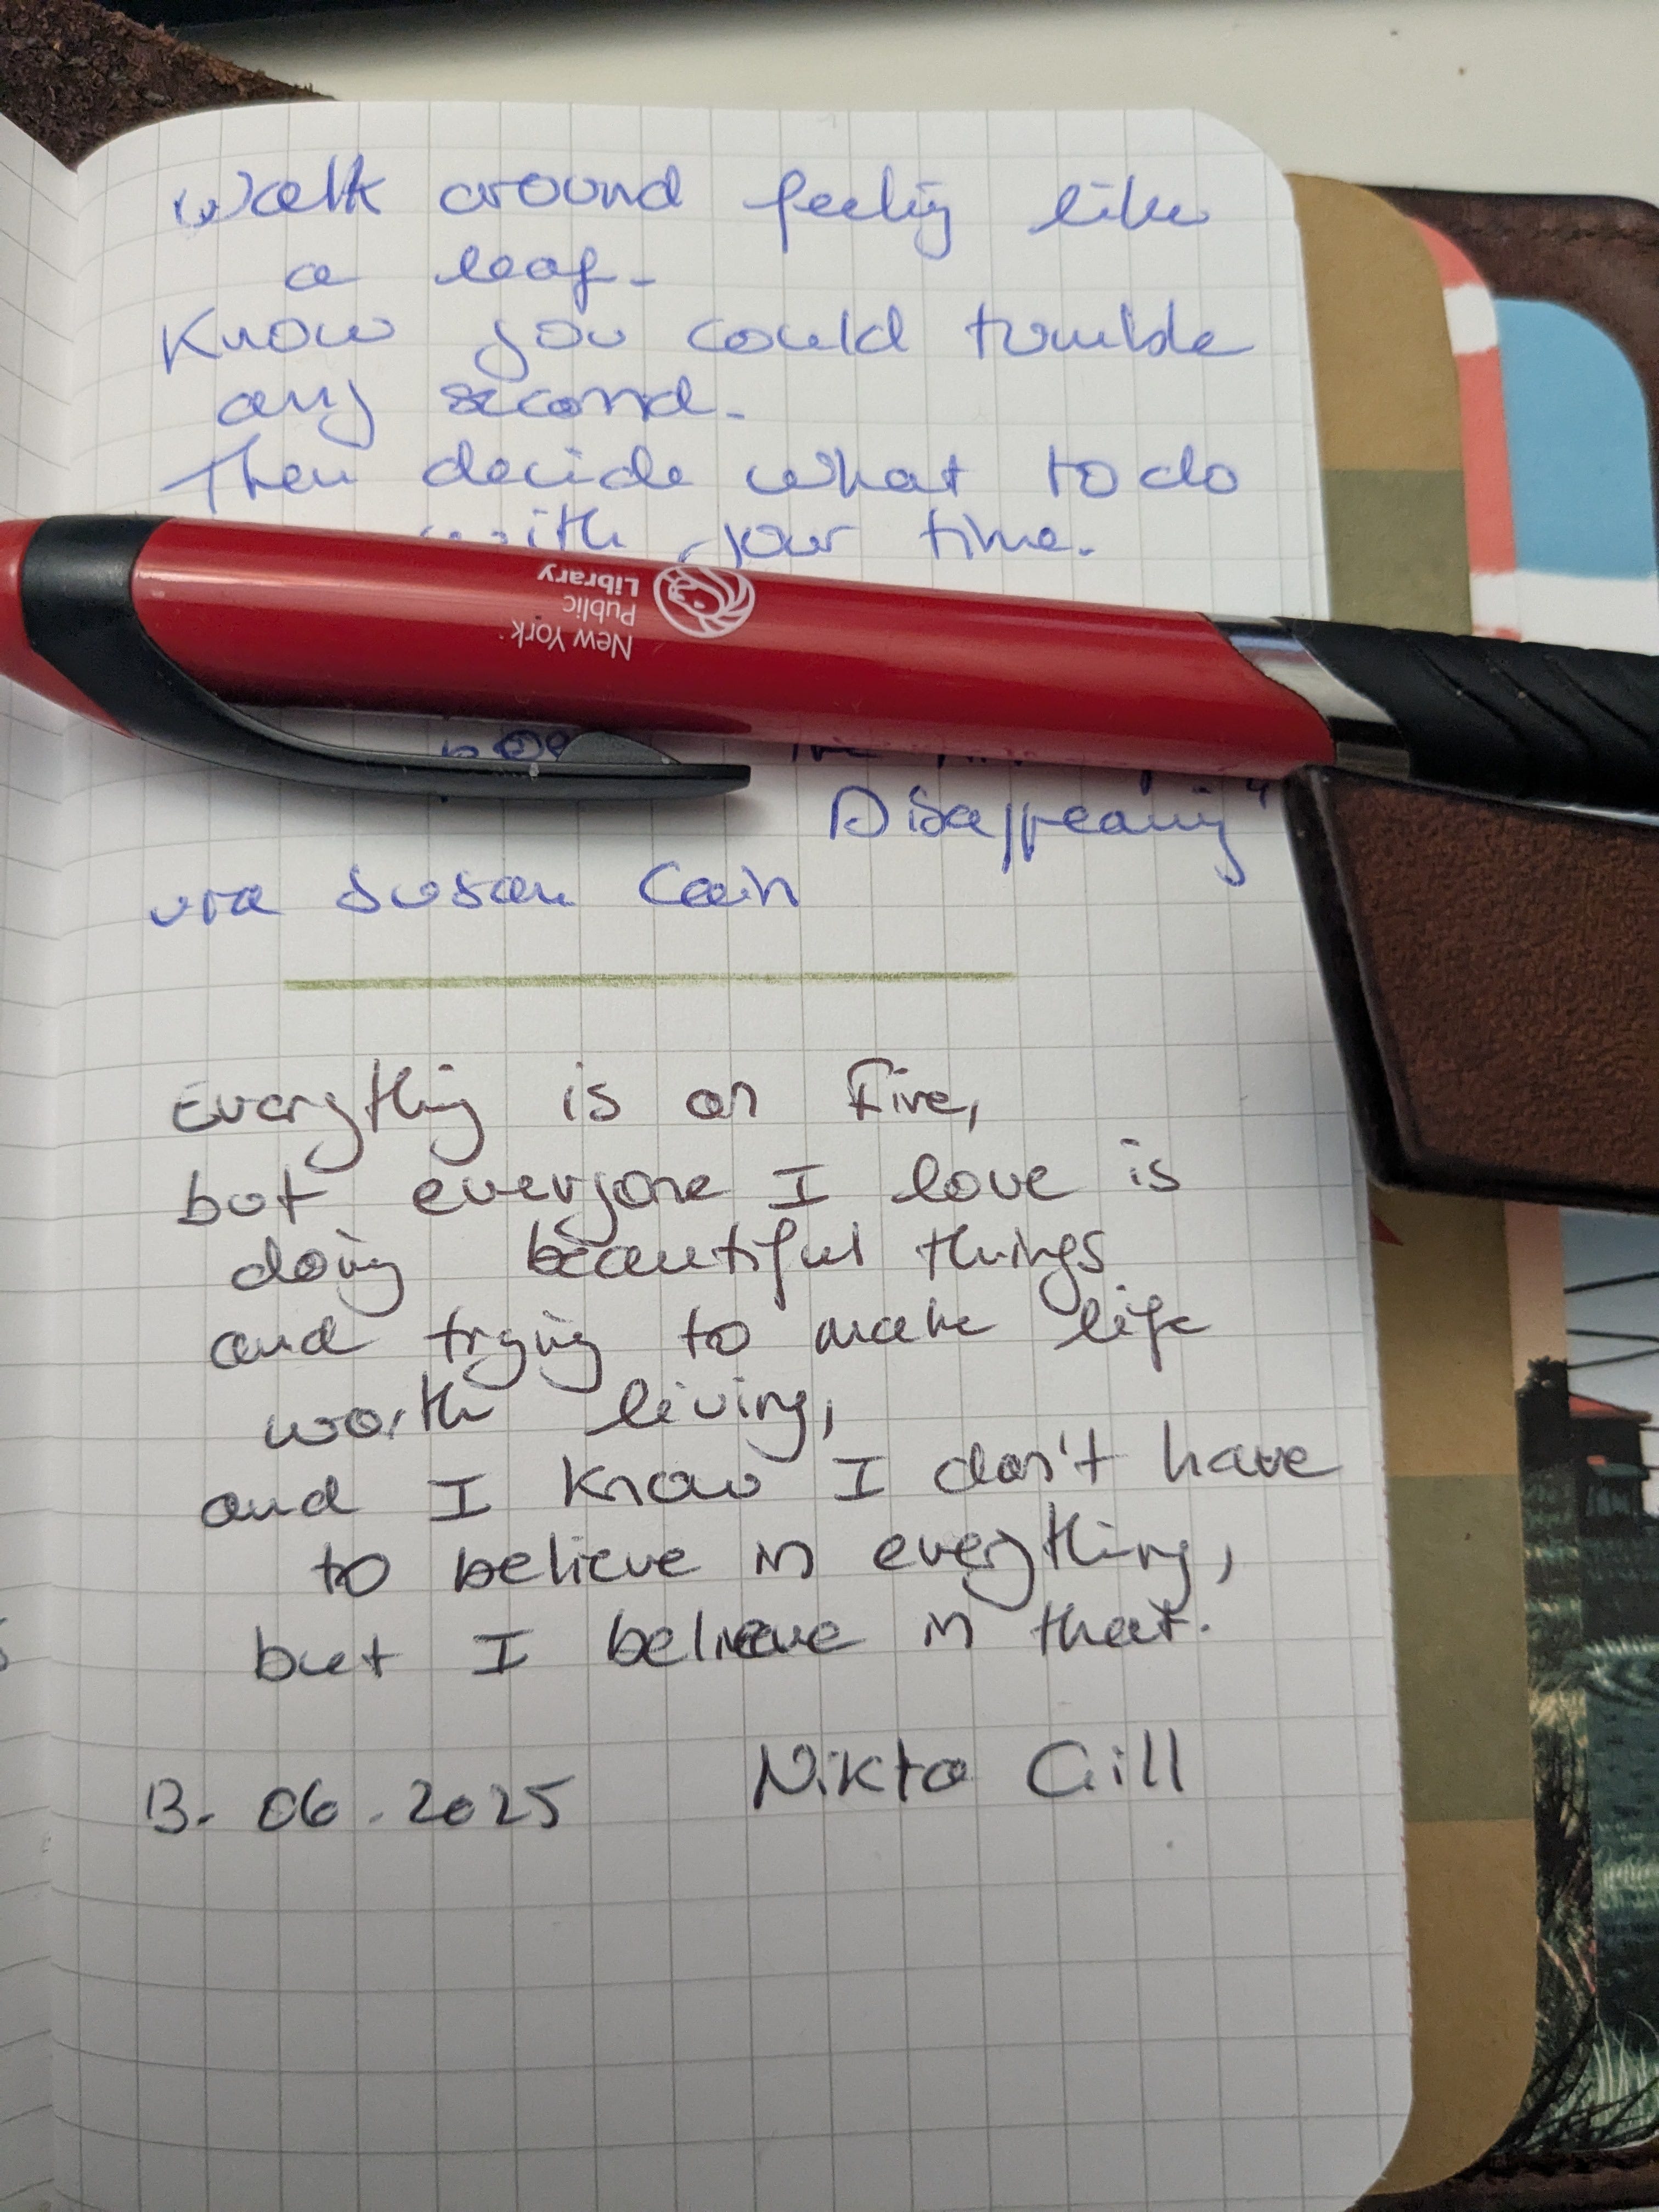 Walk around feeling like
a leaf.
Know you could tumble
any second.
Then decide what to do
with your time.
New York
Public
Library
Disappearing"
via Susan Cain
Everything is on Fire,
but everyone I love is
doing beautiful things
and trying to make life
worth living,
and I know I don't have
to believe in everything,
but I believe in that.
Nikta Gill
13. 06. 2025